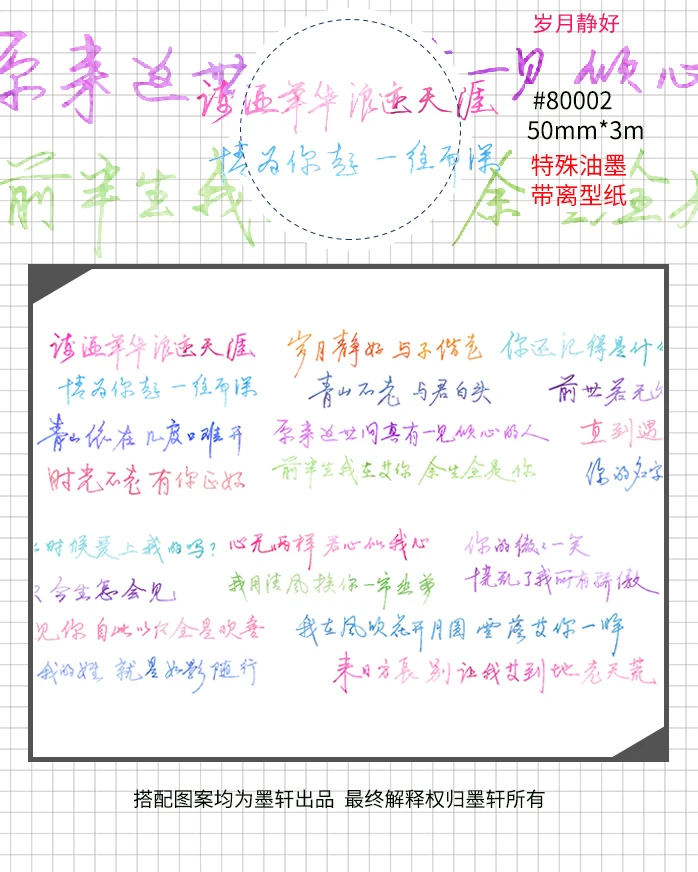 岁月静好
原来这世 一见倾心
诗酒年华浪迹天涯
#80002
50mm*3m
情为你起 一往而深
特殊油墨
前半生我 余生全
带离型纸
诗酒年华浪迹天涯 岁月静好 与子偕老 你还记得是什
情为你起 一往而深 青山不老 与君白头 前世若无
青山依在 几度口难开 原来这世间真有一见倾心的人 直到遇
时光不老 有你正好 前半生我在艾你 余生全是你 你的名字
时候爱上我的吗? 心无两样 君心似我心 你的微微一笑
今生怎会见 我用清风换你一帘幽梦 搅乱了我所有骄傲
见你 自此以后全是欢喜 我在风吹花开月圆 雪落艾你一晖
我的姓 就是如影随行 来日方长 别让我艾到地老天荒
搭配图案均为墨轩出品 最终解释权归墨轩所有